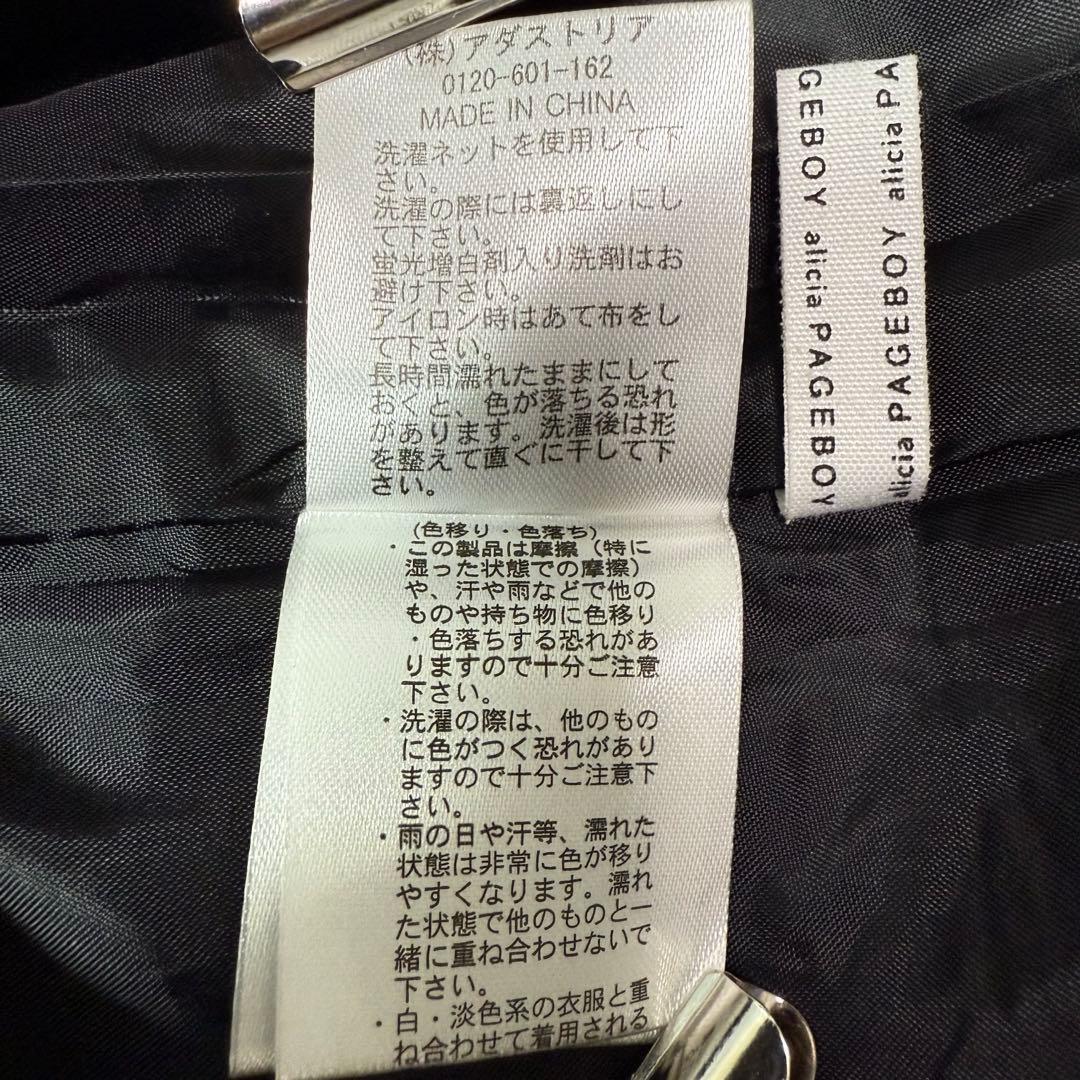 (株)アダストリア
0120-601-162
MADE IN CHINA
洗濯ネットを使用して下
さい。
洗濯の際には裏返しにし
て下さい。
蛍光増白剤入り洗剤はお
避け下さい。
アイロン時はあて布をし
て下さい。
長時間濡れたままにして
おくと、色が落ちる恐れ
があります。洗濯後は形
を整えて直ぐに干して下
さい。
(色移り・色落ち)
・この製品は摩擦(特に
湿った状態での摩擦)
や、汗や雨などで他の
ものや持ち物に色移り
・色落ちする恐れがあ
りますので十分ご注意
下さい。
・洗濯の際は、他のもの
に色がつく恐れがあり
ますので十分ご注意下
さい。
・雨の日や汗等、濡れた
状態は非常に色が移り
やすくなります。濡れ
た状態で他のものと一
緒に重ね合わせないで
下さい。
・白・淡色系の衣服と重
ね合わせて着用される
GEBOY alicia PAGEBOY
alicia PAGEBOY alicia PA